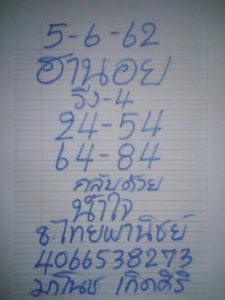 5-6-62
ฮานอย
วิ่ง-4
24-54
64-84
กลับด้วย
น้ำใจ
ธ.ไทยพานิชย์
4066538273
มาโนช เกิดศิริ